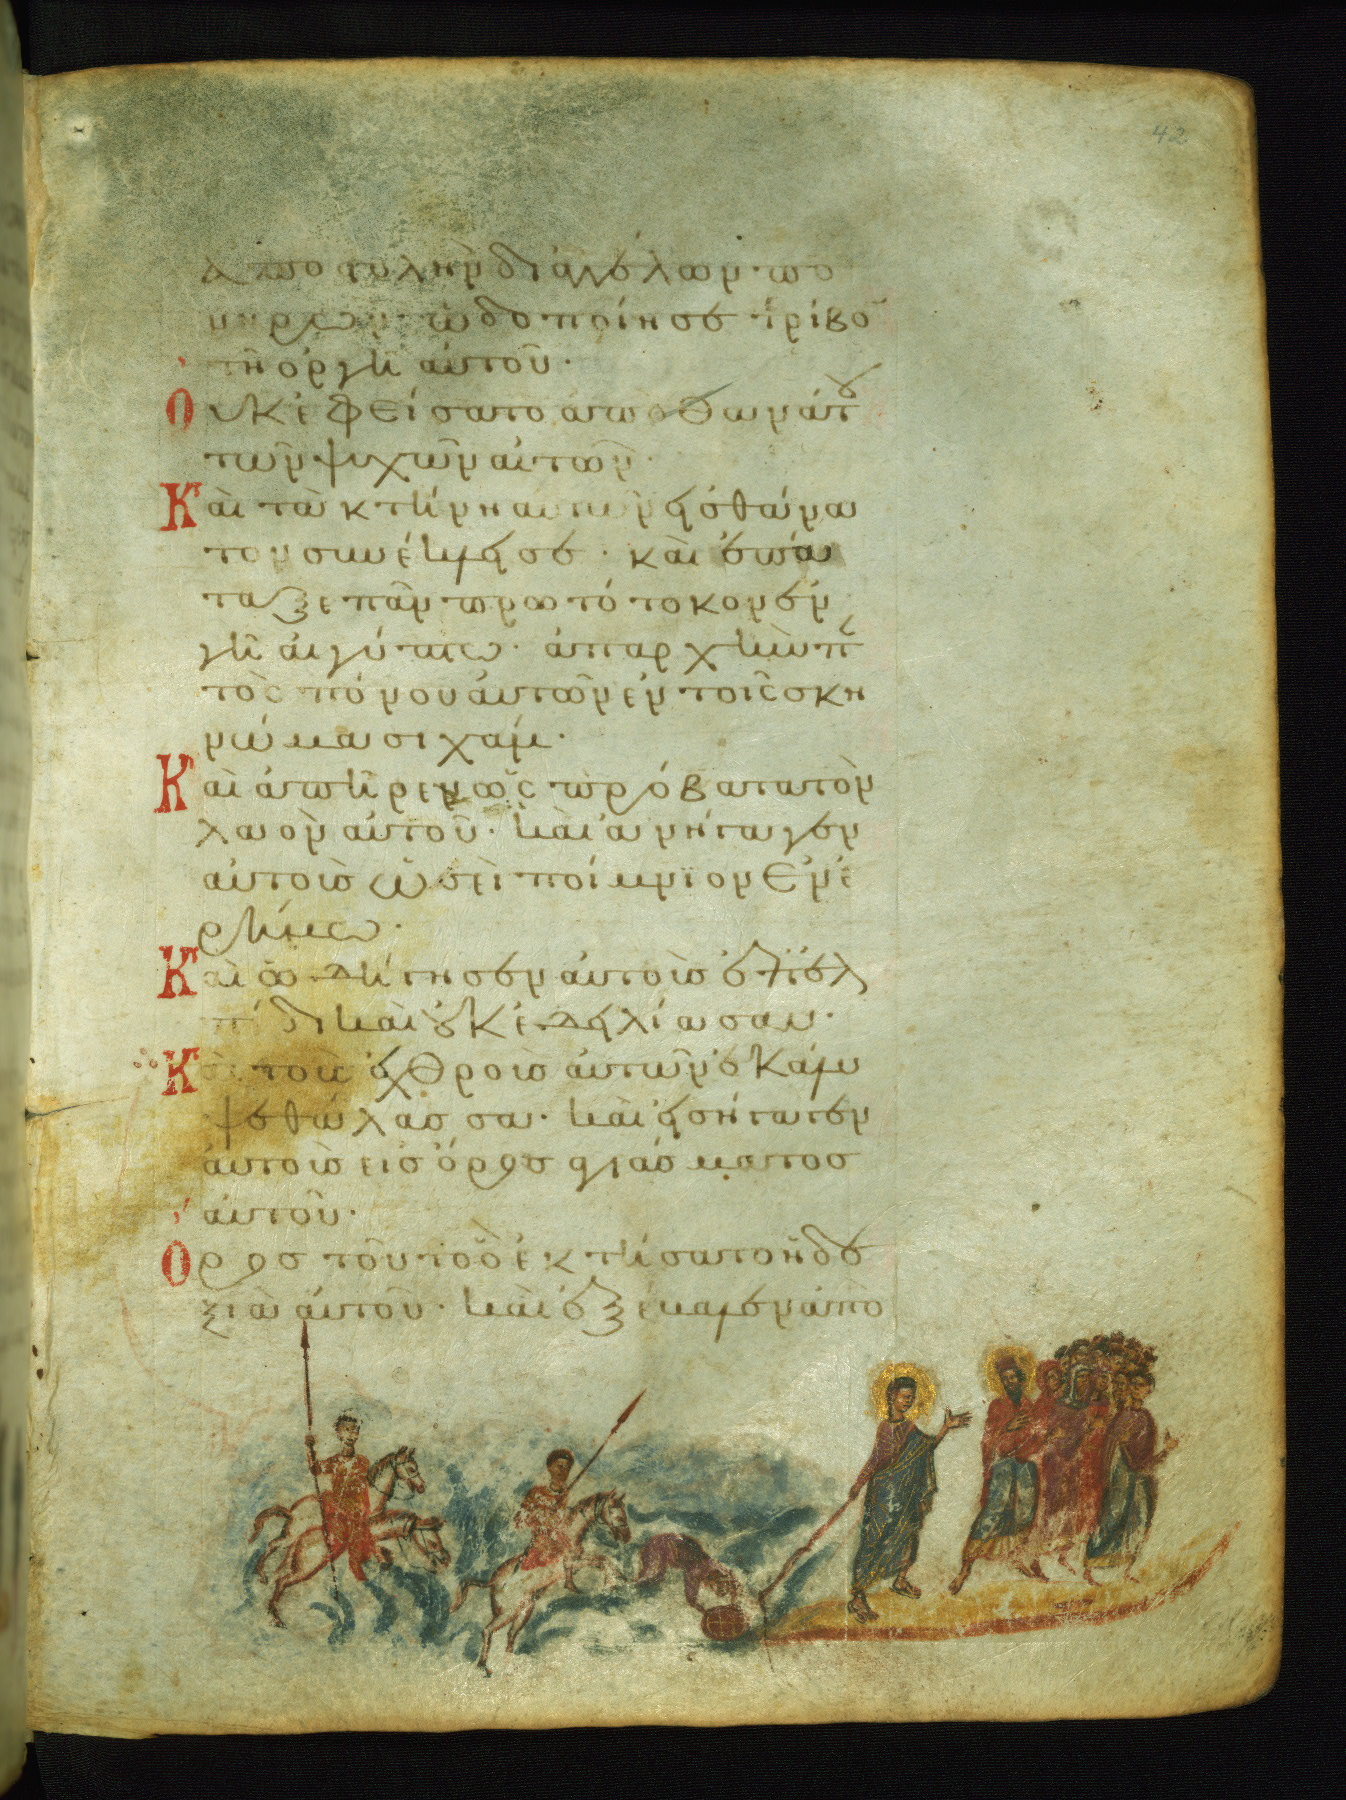 42
ἀποστολὴν δι ἀγγέλων· πο
νηρῶν· ὡδοποίησε τρίβο
τῇ ὀργῇ αὐτοῦ·
Οὐκ ἐφείσατο ἀπὸ θανάτου
τῶν ψυχῶν αὐτῶν·
Καὶ τὰ κτήνη αὐτῶν εἰς θάνα
τον συνέκλεισε· καὶ ἐπά
ταξε πᾶν πρωτότοκον ἐν
γῇ αἰγύπτω· ἀπαρχὴν π
τὸς πόνου αὐτῶν ἐν τοῖς σκη
νώμασι χάμ·
Καὶ ἀπῆρεν ὡς πρόβατα τὸν
λαὸν αὐτοῦ· καὶ ἀνήγαγεν
αὐτοὺς ὡσεὶ ποίμνιον ἐν ἐ
ρήμω·
Καὶ ὡδήγησεν αὐτοὺς ἐπ ἐλ
πίδι καὶ οὐκ ἐδειλίασαν·
Καὶ τοὺς ἐχθροὺς αὐτῶν ἐκάλυ
ψε θάλασσα· καὶ εἰσήγαγεν
αὐτοὺς εἰς ὄρος ἁγιάσματος
αὐτοῦ·
Ὄρος τοῦτο ὃ ἐκτήσατο ἡ δε
ξιὰ αὐτοῦ· καὶ ἐξέβαλεν ἀπὸ